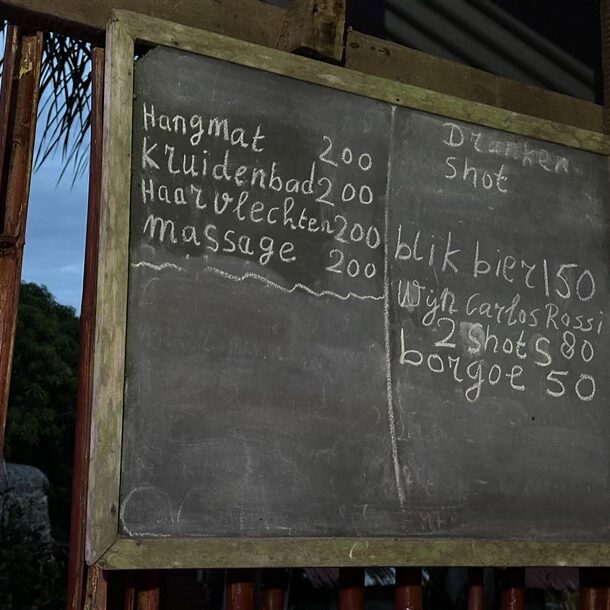 Hangmat 200
Kruidenbad 200
Haarvlechten 200
massage 200
Dranken
Shot
blik bier 150
Wijn Carlos Rossi
2 Shots 80
borgoe 50